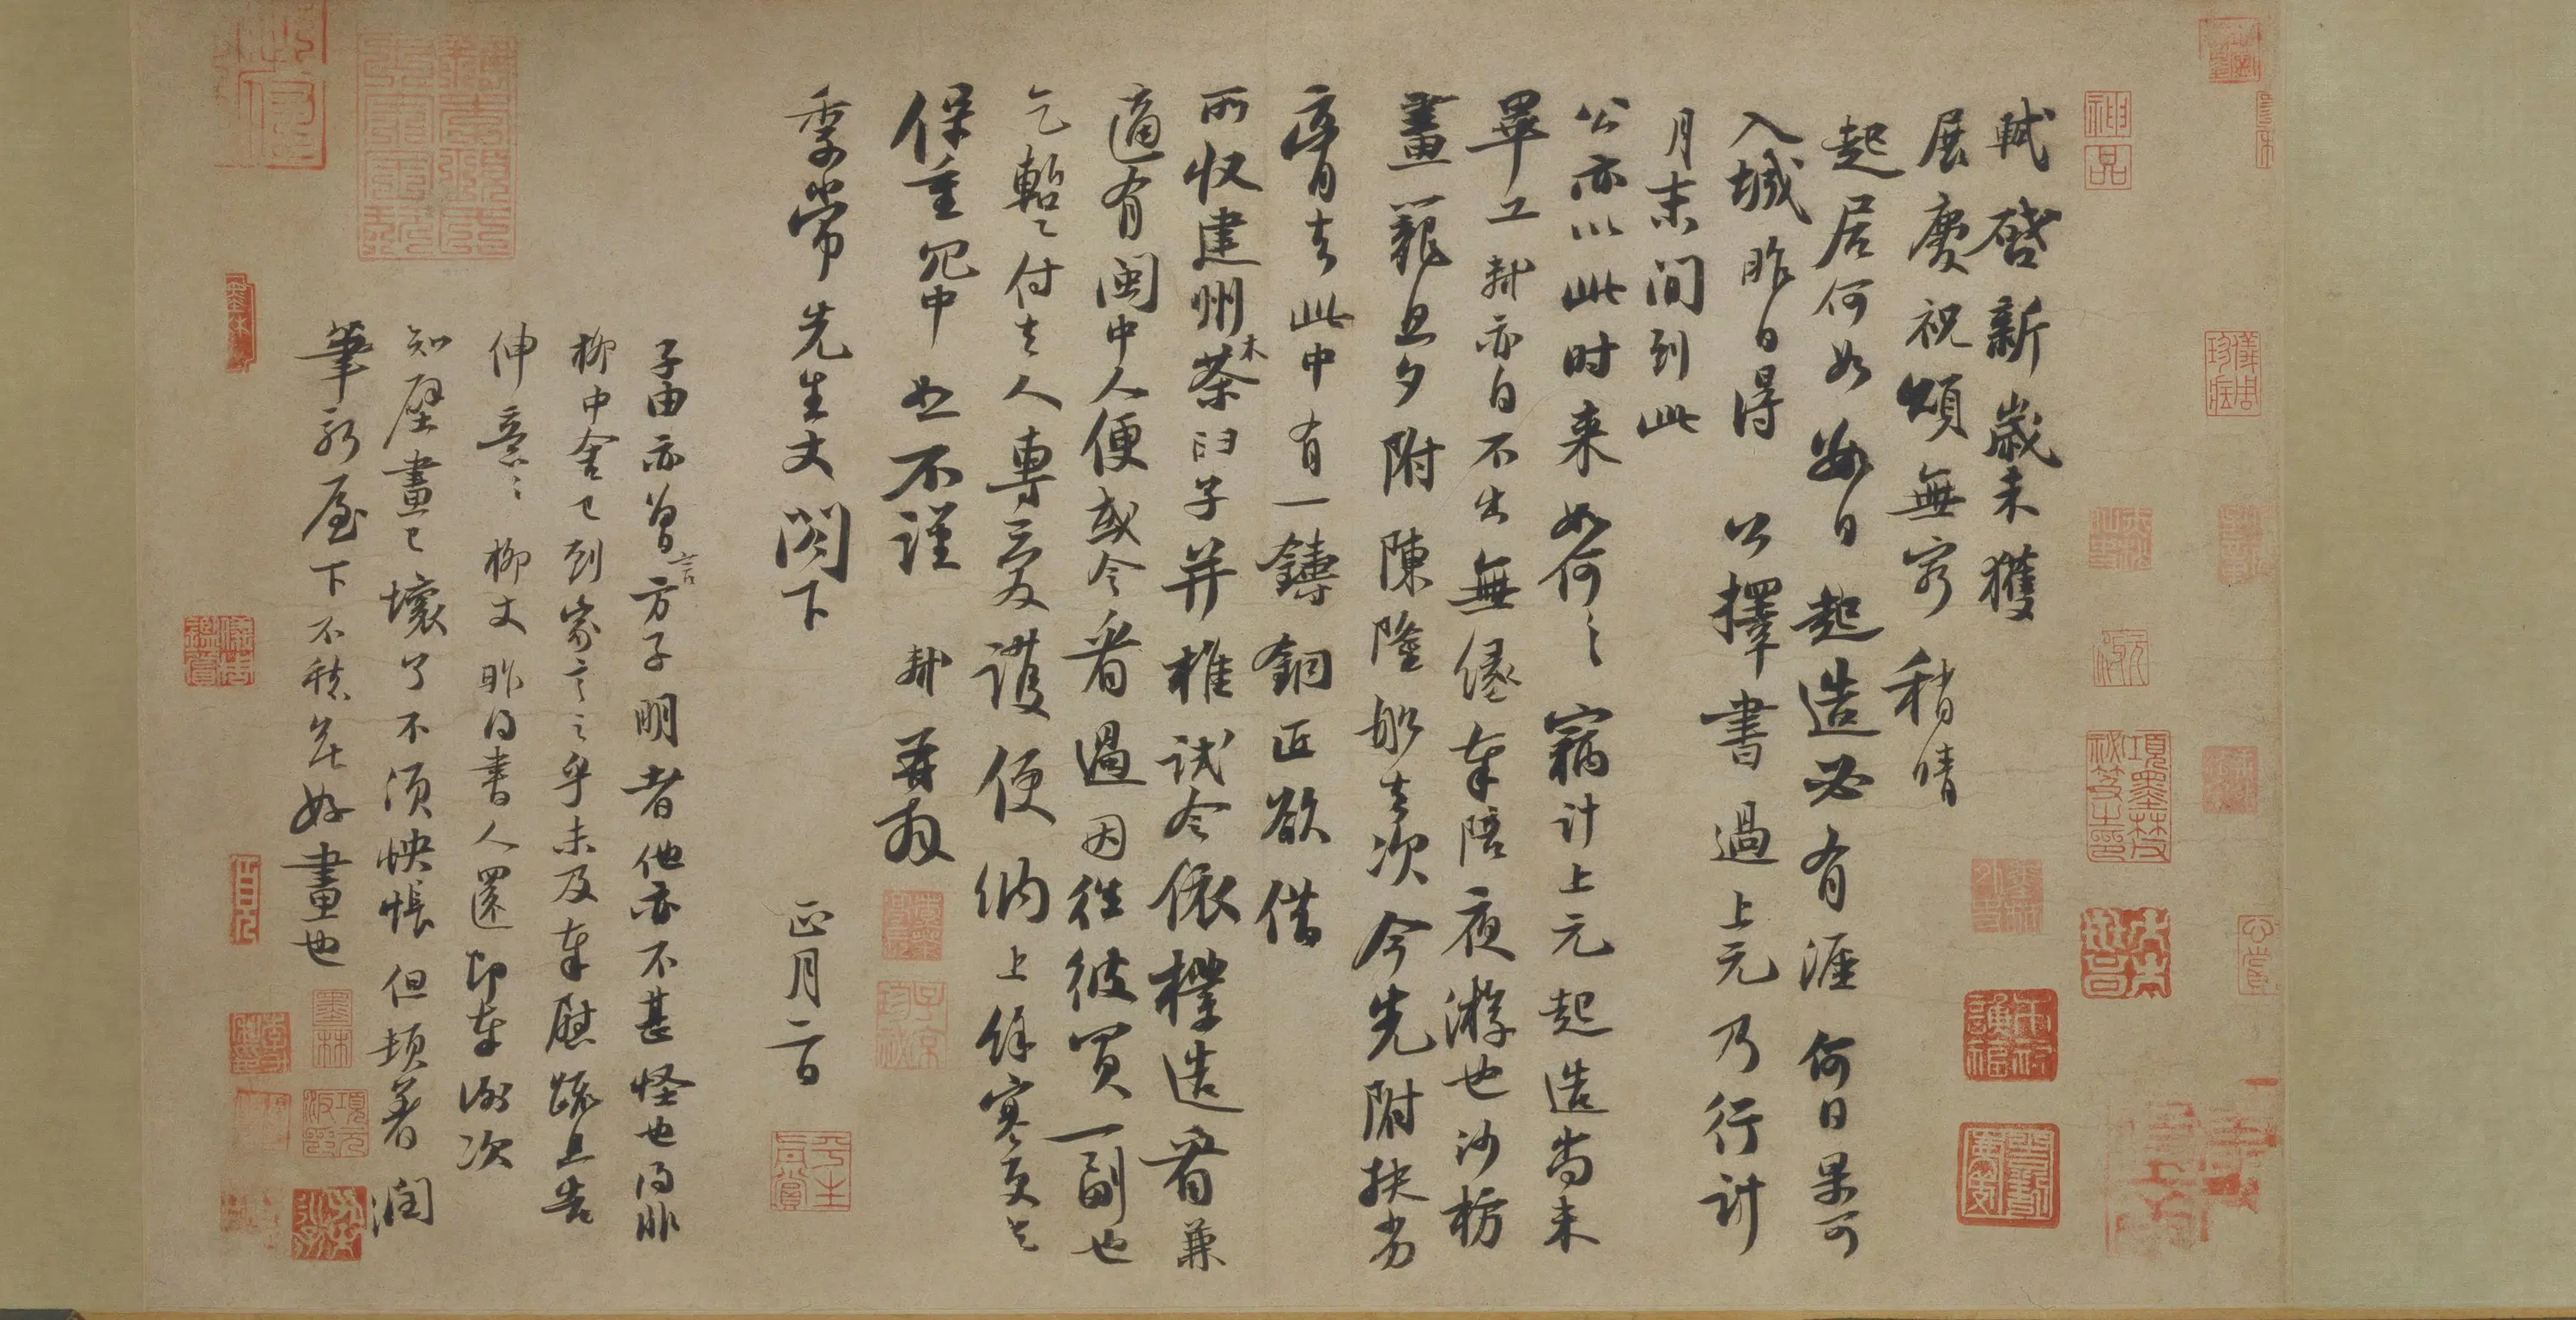 軾啓新歲未獲
展慶祝頌無窮稍晴
起居何如數日起造必有涯何日果可
入城昨日得公擇書過上元乃行計
月末間到此
公亦以此時來如何〻竊計上元起造尚未
畢工軾亦自不出無緣奉陪夜游也沙枋
畫籠旦夕附陳隆船去次今先附扶劣
膏去此中有一鑄銅匠欲借
所收建州木茶臼子并椎試令依樣造看兼
適有閩中人便或令看過因往彼買一副也
乞暫〻付去人專愛護便納上餘寒更乞
保重冗中恕不謹軾再拜
季常先生丈閤下正月二日
子由亦曾言方子明者他亦不甚怪也得非
柳中舍已到家言之乎未及奉慰疏且告
伸意〻柳丈昨得書人還即奉謝次
知壁畫已壞了不須怏悵但頓著潤
筆新屋下不愁無好畫也
神品
項墨林父秘笈之印
墨林
項元汴印